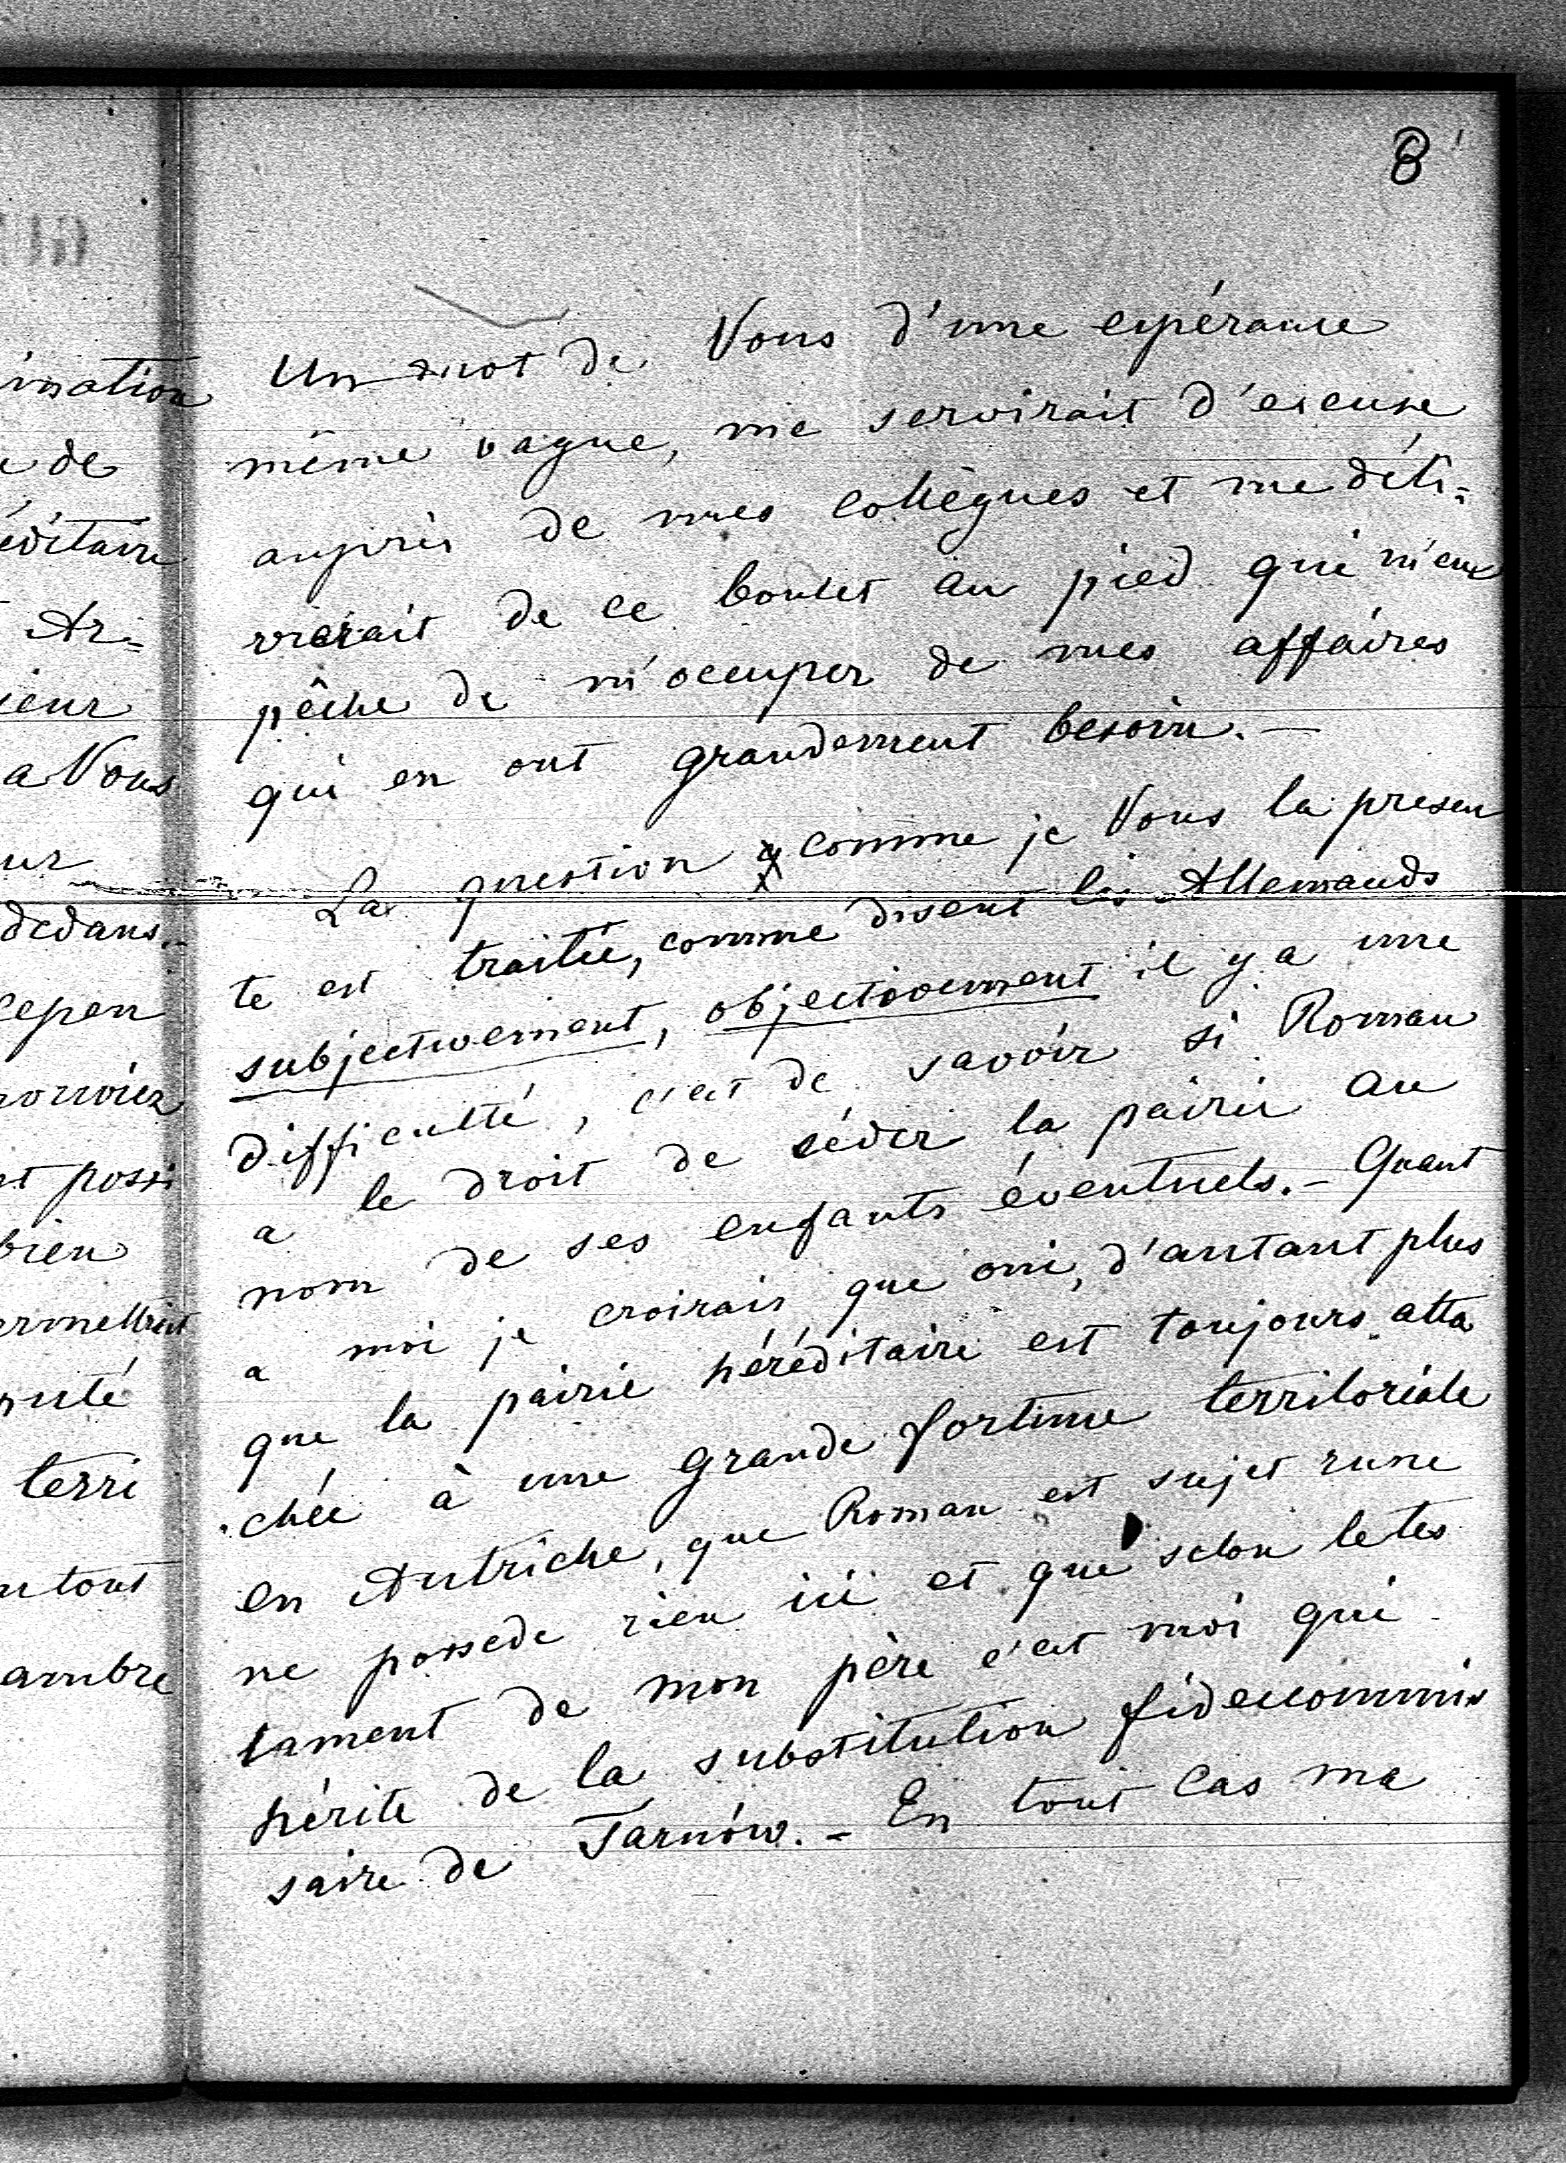 8
Un mot de Vous d'une espérance
même vague, me servirait d'excuse
auprès de mes collègues et me déli=
vrerait de ce boulet au pied qui m'em
pêche de m'occuper de mes affaires
qui en ont grandement besoin. —
La question comme je Vous la presen
te est traitée, comme disent les Allemands
subjectivement, objectivement il y a une
difficulté, c'est de savoir si Roman
a le droit de céder la pairie au
nom de ses enfants éventuels. — Quant
a moi je croirais que oui, d'autant plus
que la pairie héréditaire est toujours atta
chée à une grande fortune territoriale
en Autriche, que Roman est sujet russe
ne possede rien ici et que selon le tes
tament de mon père c'est moi qui
hérite de la substitution fideicommis
saire de Tarnów. — En tout cas ma
ination
de
éditaire
Ar=
ieur
a Vous
ur
dedans. -
cepen
nt possi
bien
ermettrait
puté
terri
tout
ambre